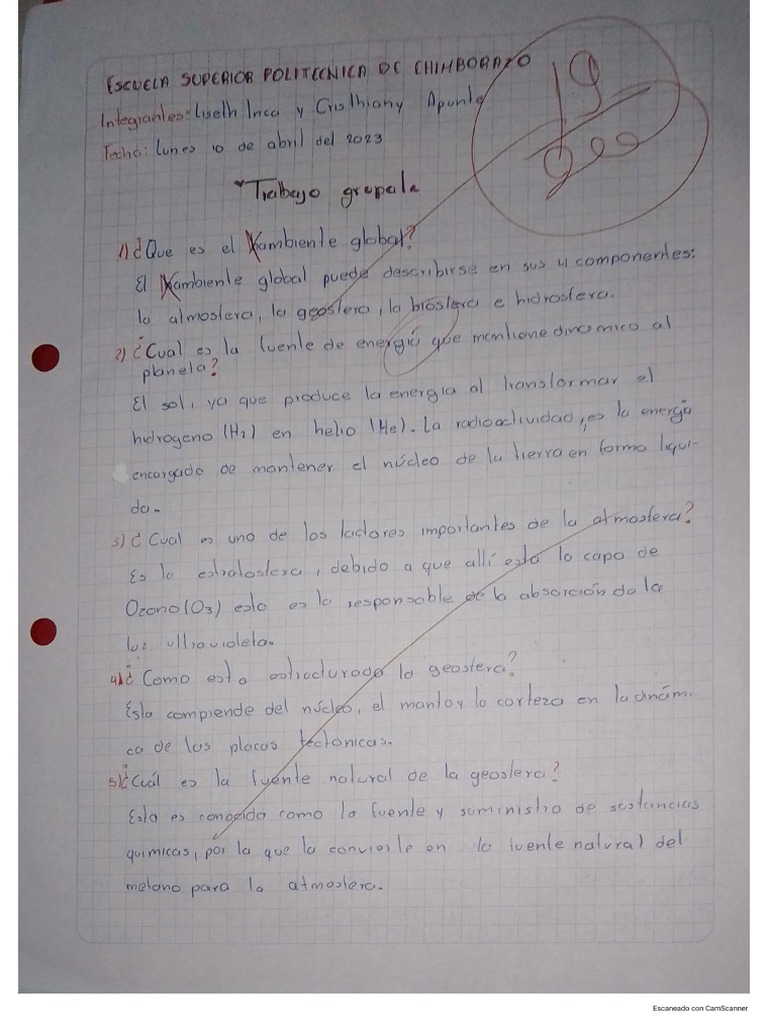 ESCUELA SUPERIOR POLITECNICA DE CHIMBORAZO
Integrantes: Liseth Inca y Cristhiany Apunte
Fecha: lunes 10 de abril del 2023
19
Trabajo grupale
1) ¿Que es el ambiente global?
El ambiente global puede describirse en sus 4 componentes:
la atmosfera, la geosfera, la biosfera e hidrosfera.
2) ¿Cual es la fuente de energía que mantiene dinamico al
planeta?
El sol, ya que produce la energia al transformar el
hidrogeno (H2) en helio (He). La radioactividad, es la energía
encargado de mantener el núcleo de la tierra en forma liqui-
da.
3) ¿Cual es uno de los factores importantes de la atmosfera?
Es la estratosfera, debido a que allí está la capa de
Ozono (O3) esto es la responsable de la absorción de la
luz ultravioleta.
4) ¿Como esta estructurada la geosfera?
Esta comprende del núcleo, el manto y la corteza en la dinámi-
ca de las placas tectonicas.
5) ¿Cuál es la fuente natural de la geosfera?
Esta es conocida como la fuente y suministro de sustancias
quimicas, por la que la convierte en la fuente natural del
metano para la atmosfera.
Escaneado con CamScanner